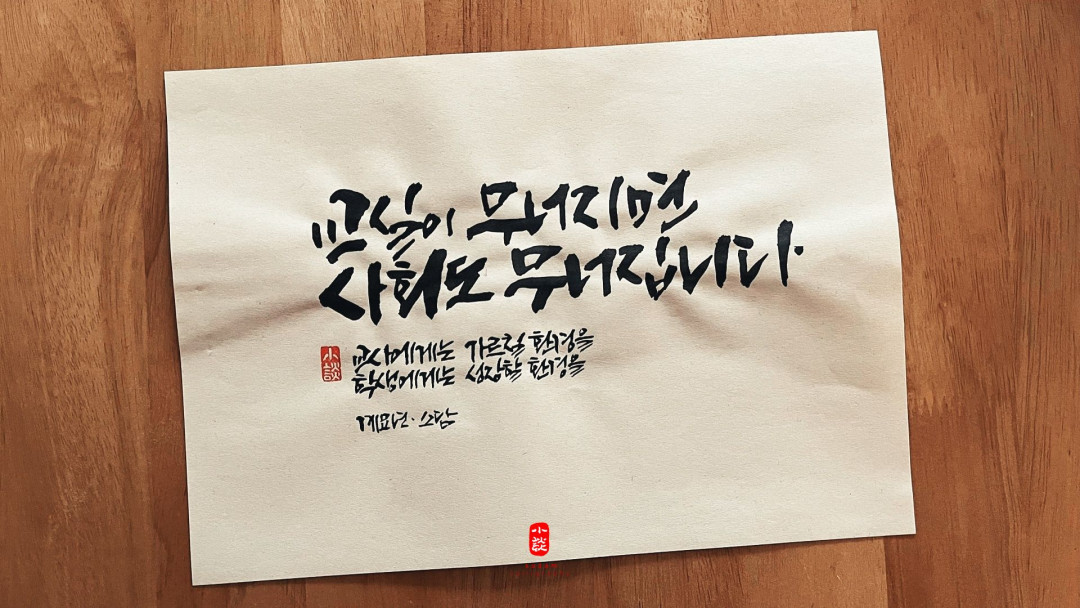 교실이 무너지면
사회도 무너집니다.
교사에게는 가르칠 환경을
학생에게는 성장할 환경을
캘리닷·소담
小談
小談